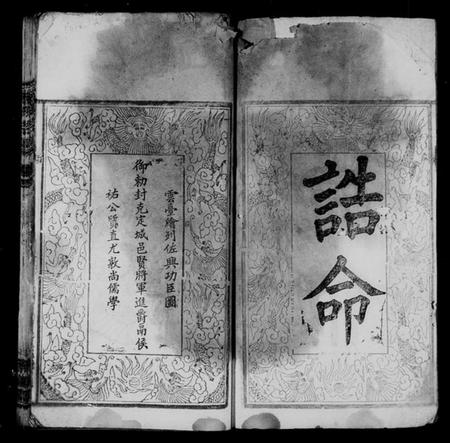 誥命
雲臺繪列佐興功臣圖
御勅封克定城邑賢將軍進爵鬲侯
祐公質直尤敦尚儒學